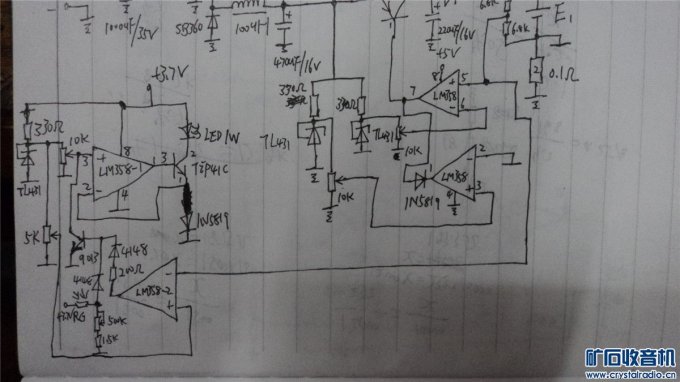 1000uF/35V
SB360
100uH
470uF/16V
220uF/16V
+5V
6.8K
6.8K
E1
0.1Ω
+3.7V
330Ω
10K
TL431
8
3
2
LM358-1
1
4
3
2
1
LED 1W
TIP41C
1N5819
330Ω
330Ω
TL431
TL431
10K
10K
7
8
5
6
LM358
LM358
1N5819
2
3
4
5K
9013
4148
4148
200Ω
LM358-2
500K
1.5K
矿石收音机
www.crystalradio.cn